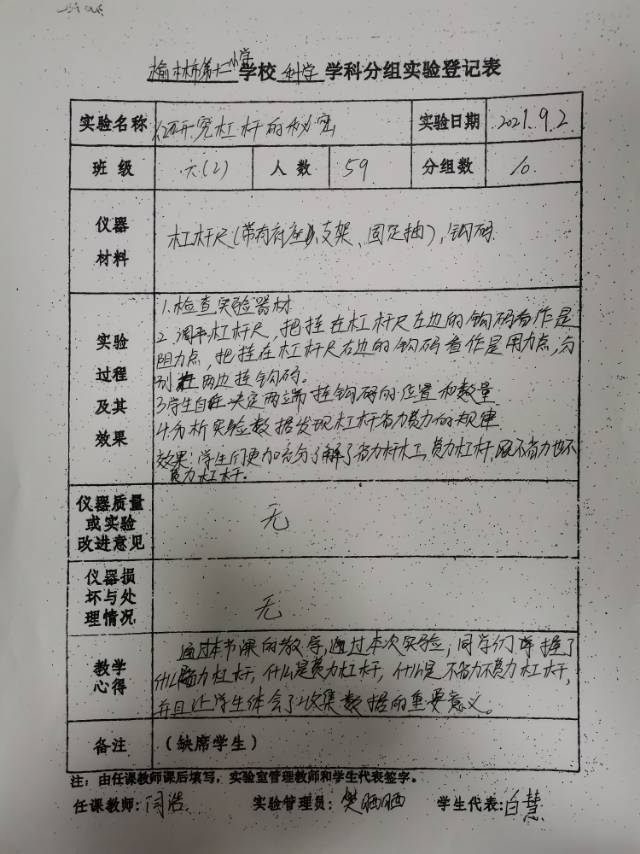 榆林市第十二小学学校 科学 学科分组实验登记表
实验名称 研究杠杆的秘密 实验日期 2021.9.2
班级 六(2) 人数 59 分组数 10
仪器材料 杠杆尺(带有底座、支架、固定轴),钩码
实验过程及其效果
1.检查实验器材
2.调平杠杆尺,把挂在杠杆尺左边的钩码看作是
阻力点,把挂在杠杆尺右边的钩码看作是用力点,分
别在两边挂钩码。
3.学生自主决定两端挂钩码的位置和数量
4.分析实验数据发现杠杆省力费力的规律
效果:学生们更加充分了解了省力杠杆,费力杠杆,既不省力也不
费力杠杆。
仪器质量或实验改进意见 无
仪器损坏与处理情况 无
教学心得
通过本节课的教学,通过本次实验,同学们掌握了
什么力杠杆,什么是费力杠杆,什么是不省力不费力杠杆,
并且让学生体会了收集数据的重要意义。
备注 (缺席学生)
注:由任课教师课后填写,实验室管理教师和学生代表签字。
任课教师:闫浩 实验管理员:樊晒晒 学生代表:白慧